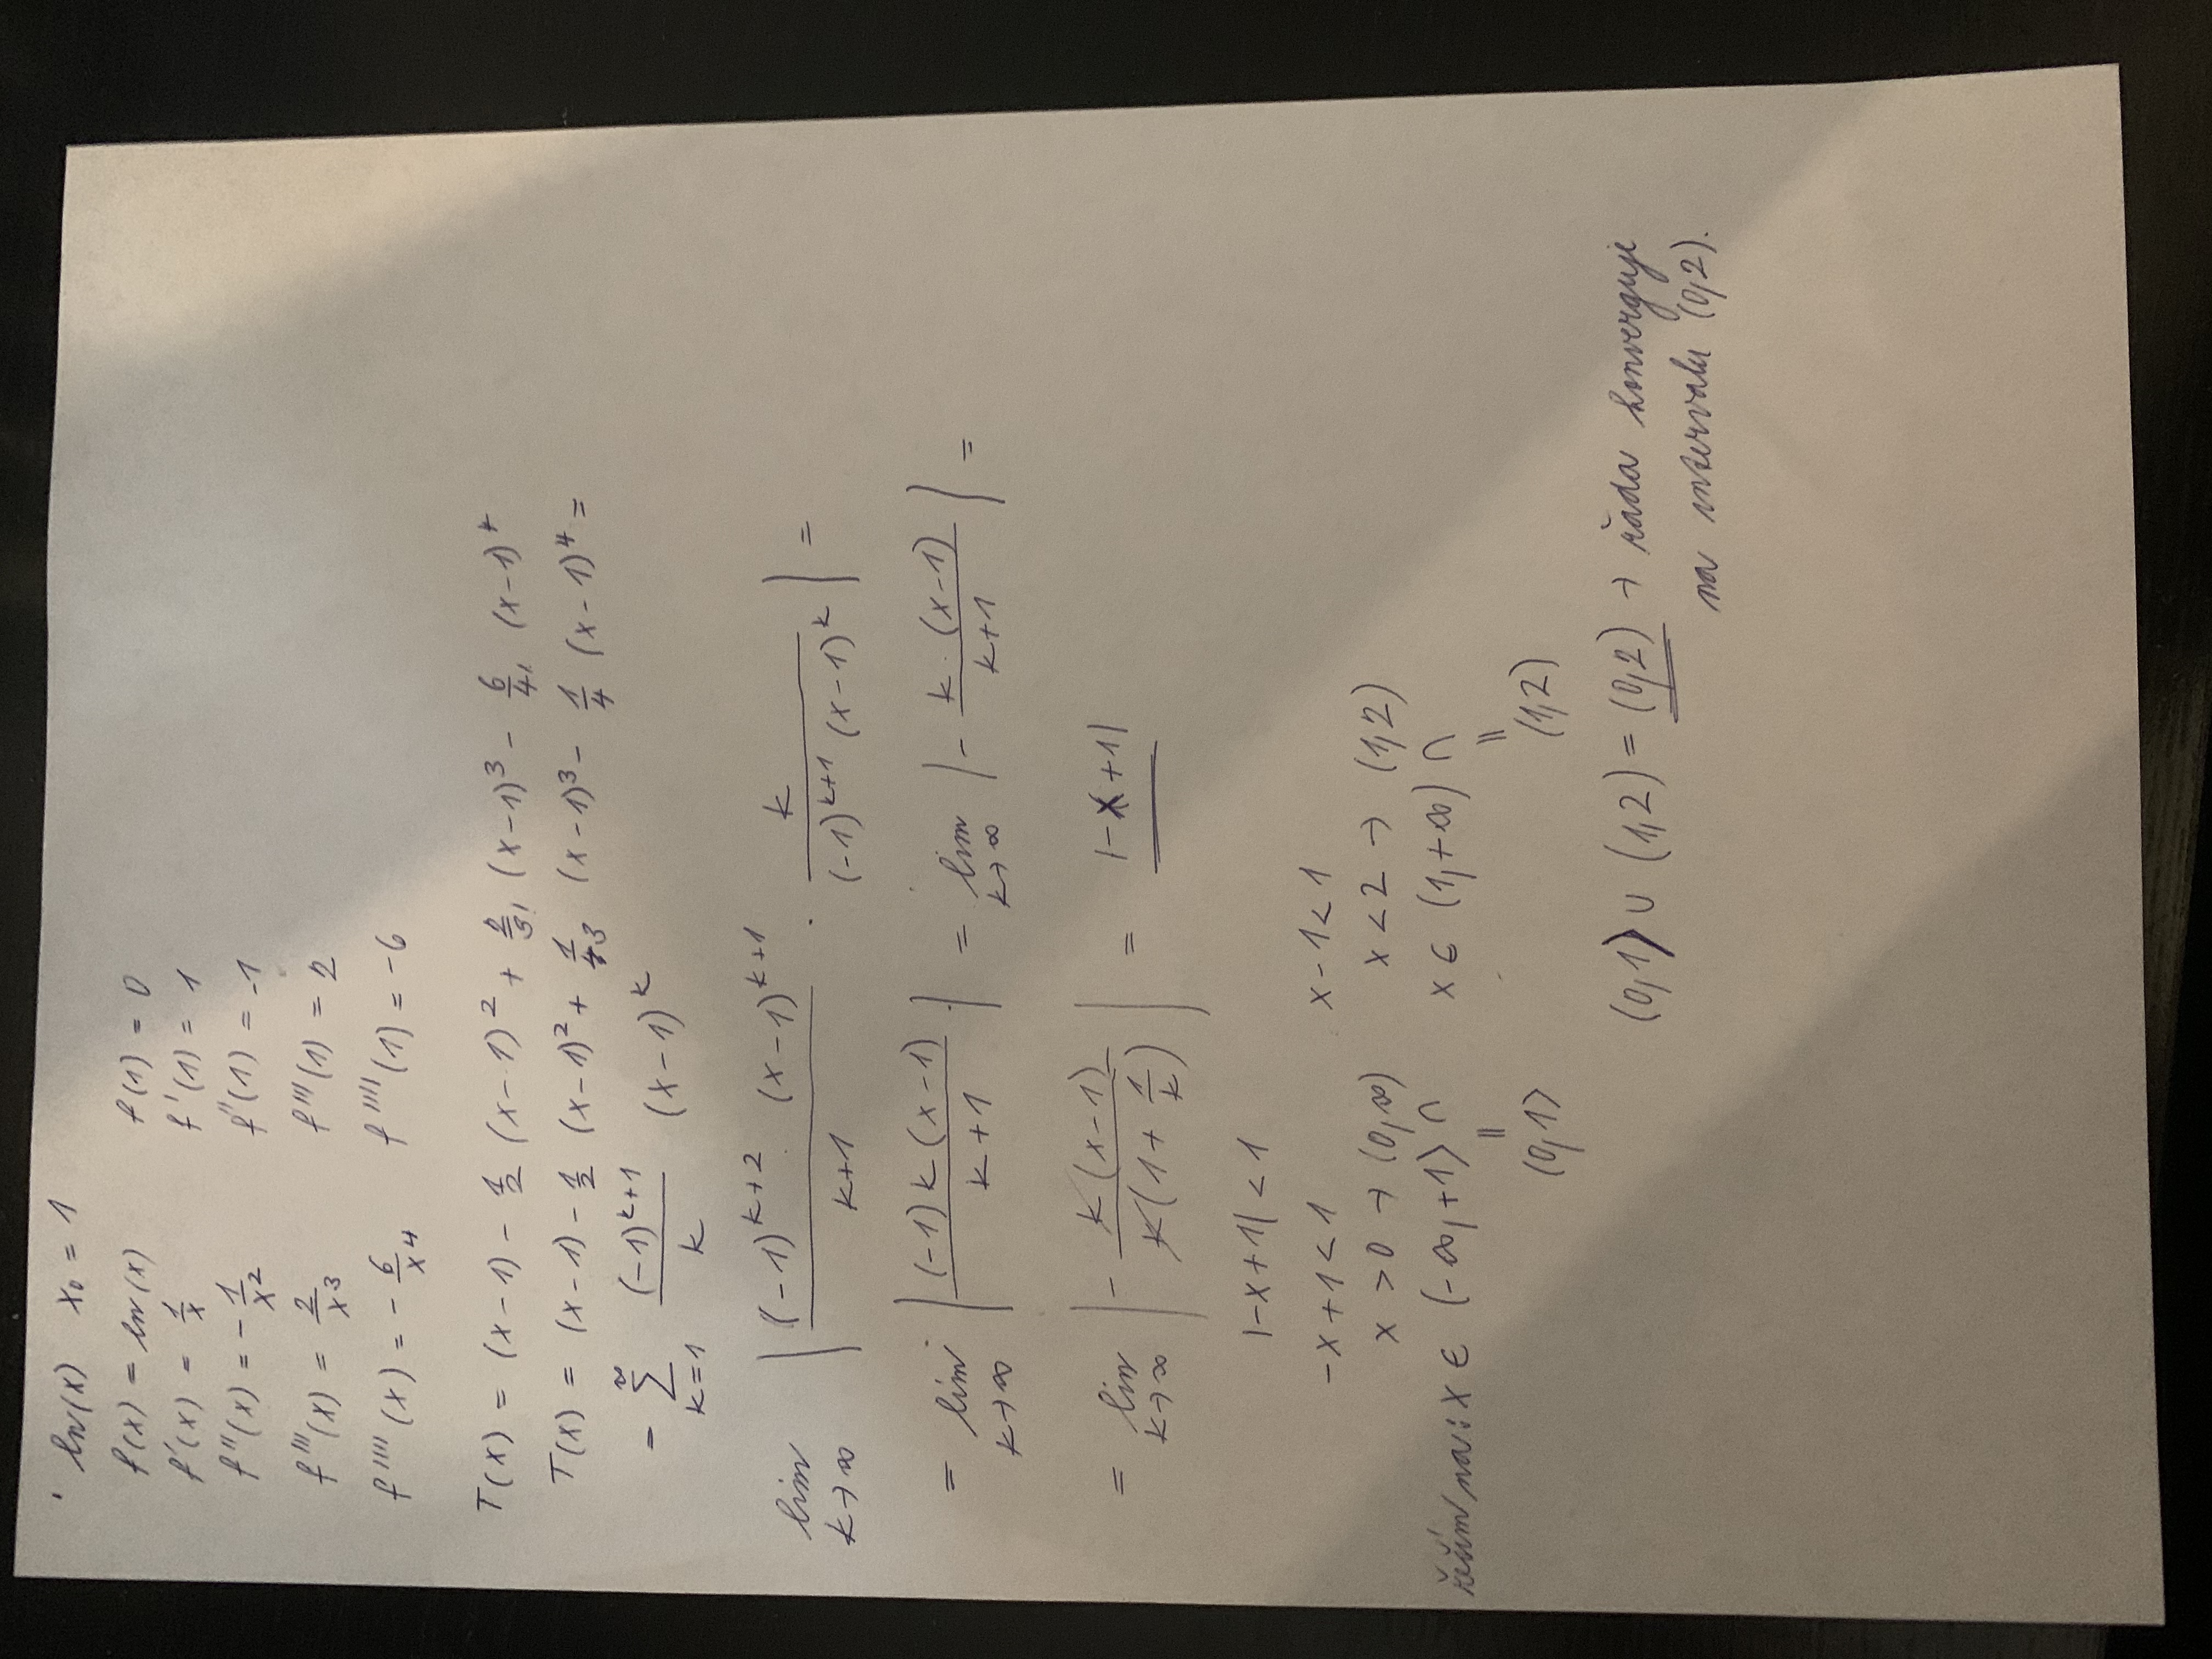 · ln(x) x₀ = 1
f(x) = ln(x) f(1) = 0
f'(x) = 1/x f'(1) = 1
f''(x) = -1/x² f''(1) = -1
f'''(x) = 2/x³ f'''(1) = 2
f''''(x) = -6/x⁴ f''''(1) = -6
T(x) = (x-1) - 1/2 (x-1)² + 2/3! (x-1)³ - 6/4! (x-1)⁴
T(x) = (x-1) - 1/2 (x-1)² + 1/3 (x-1)³ - 1/4 (x-1)⁴ =
= ∑_{k=1}^{∞} (-1)^{k+1}/k (x-1)^k
lim_{k→∞} | (-1)^{k+2} · (x-1)^{k+1} / (k+1) · k / ((-1)^{k+1} (x-1)^k) | =
= lim_{k→∞} | (-1) k (x-1) / (k+1) | = lim_{k→∞} | - k · (x-1) / (k+1) | =
= lim_{k→∞} | - k (x-1) / (k (1 + 1/k)) | = |-x+1|
|-x+1| < 1
-x+1 < 1 x-1 < 1
x > 0 → (0,∞) x < 2 → (1,2)
řeším na: x ∈ (-∞,+1⟩ ∩ x ∈ (1,+∞) ∩
= =
(0,1⟩ (1,2)
(0,1⟩ ∪ (1,2) = (0,2) → řada konverguje
na intervalu (0,2).